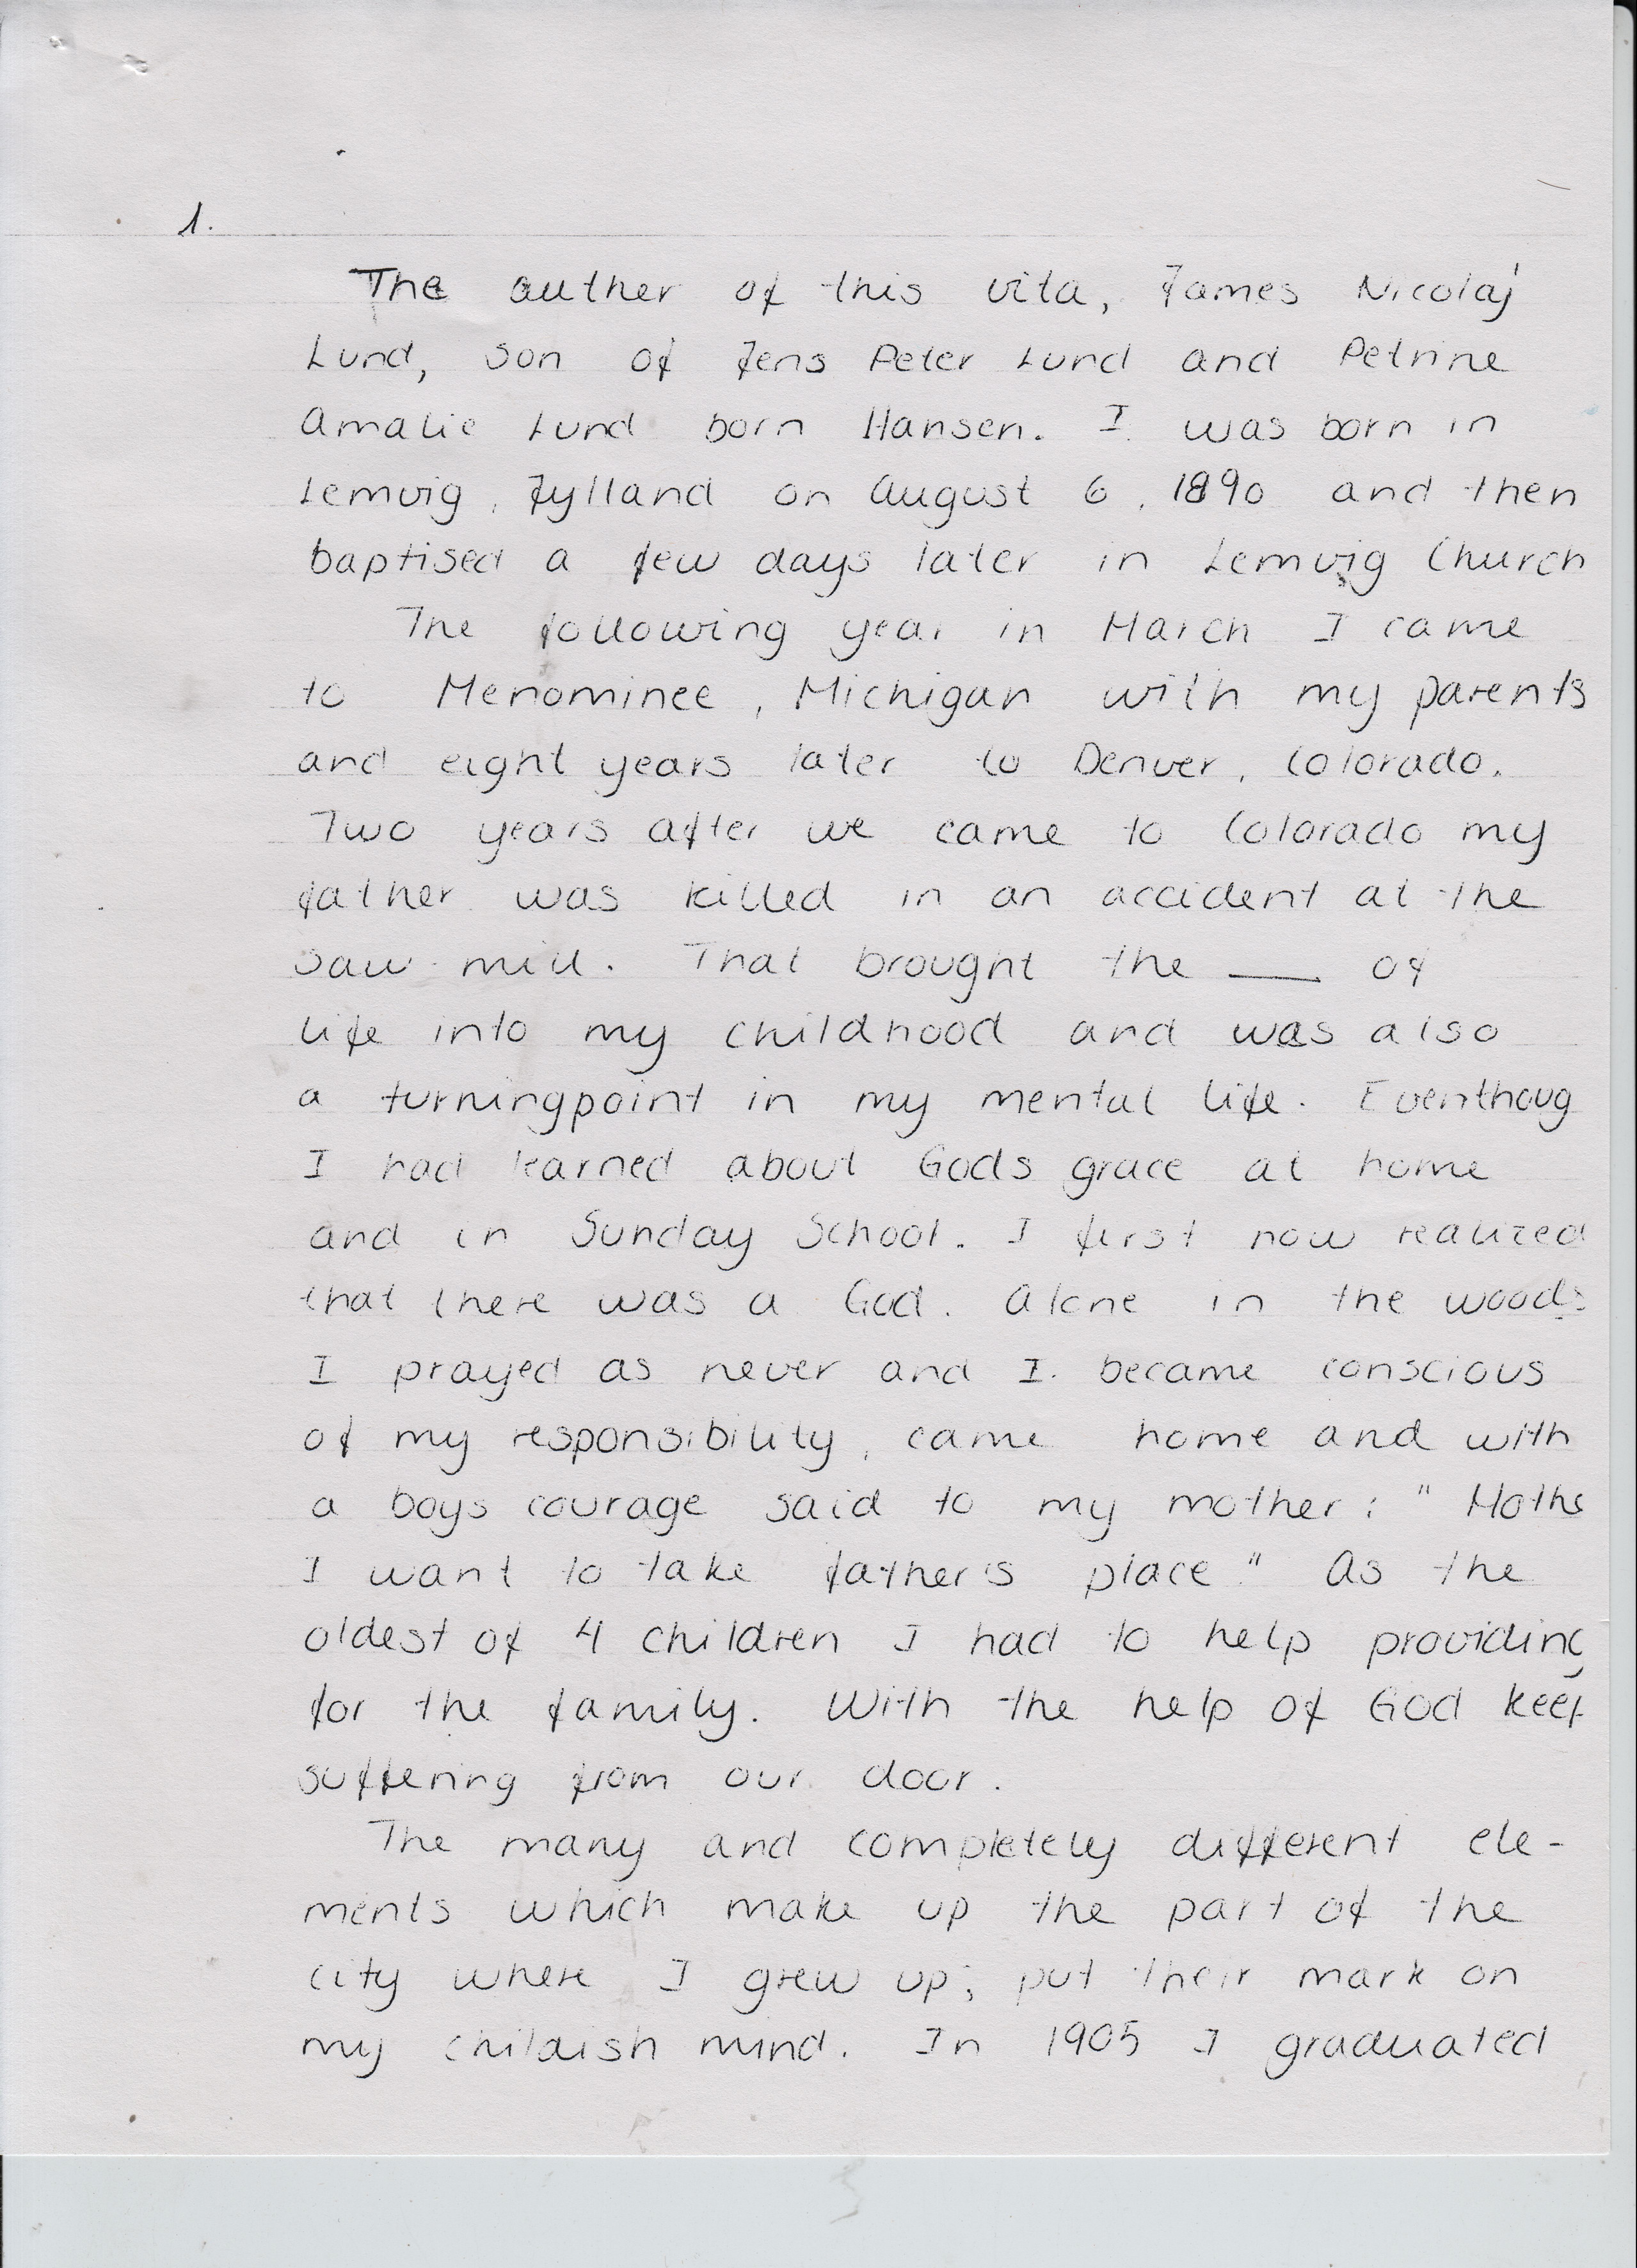 1.
The auther of this vita, James Nicolaj
Lund, son of Jens Peter Lund and Petrine
Amalie Lund born Hansen. I was born in
Lemvig, Jylland on August 6, 1890 and then
baptised a few days later in Lemvig Church
The following year in March I came
to Menominee, Michigan with my parents
and eight years later to Denver, Colorado.
Two years after we came to Colorado my
father was killed in an accident at the
saw mill. That brought the ___ of
life into my childhood and was also
a turningpoint in my mental life. Eventhoug
I had learned about Gods grace at home
and in Sunday School. I first now realized
that there was a God. Alone in the woods
I prayed as never and I became conscious
of my responsibility, came home and with
a boys courage said to my mother: " Mothe
I want to take father's place " As the
oldest of 4 children I had to help providing
for the family. With the help of God keep
suffering from our door.
The many and completely different ele-
ments which make up the part of the
city where I grew up, put their mark on
my childish mind. In 1905 I graduated